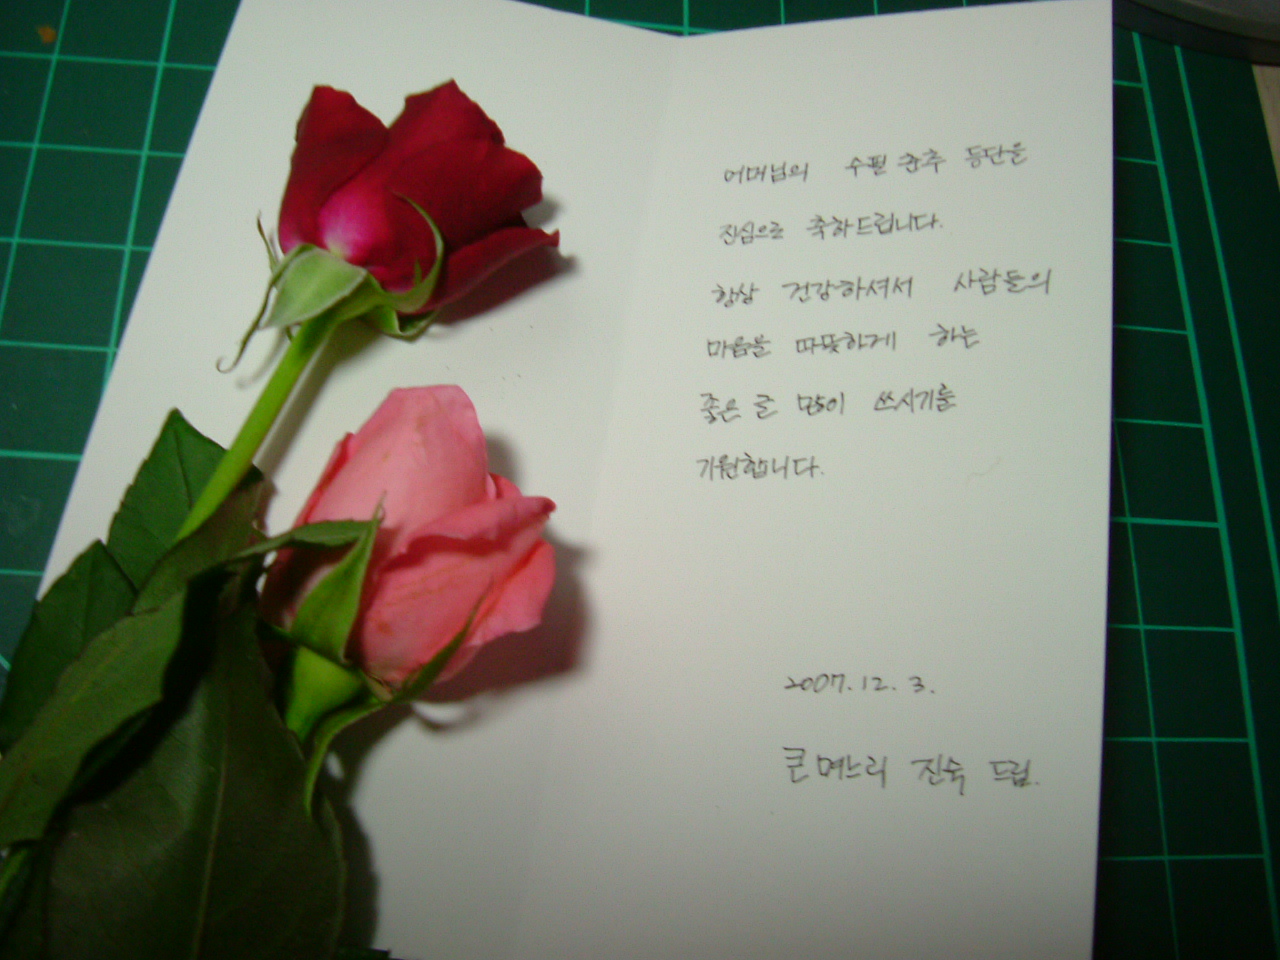 어머님의 수필춘추 등단을
진심으로 축하드립니다.
항상 건강하셔서 사람들의
마음을 따뜻하게 하는
좋은 글 많이 쓰시기를
기원합니다.
2007. 12. 3.
큰며느리 진숙 드림.